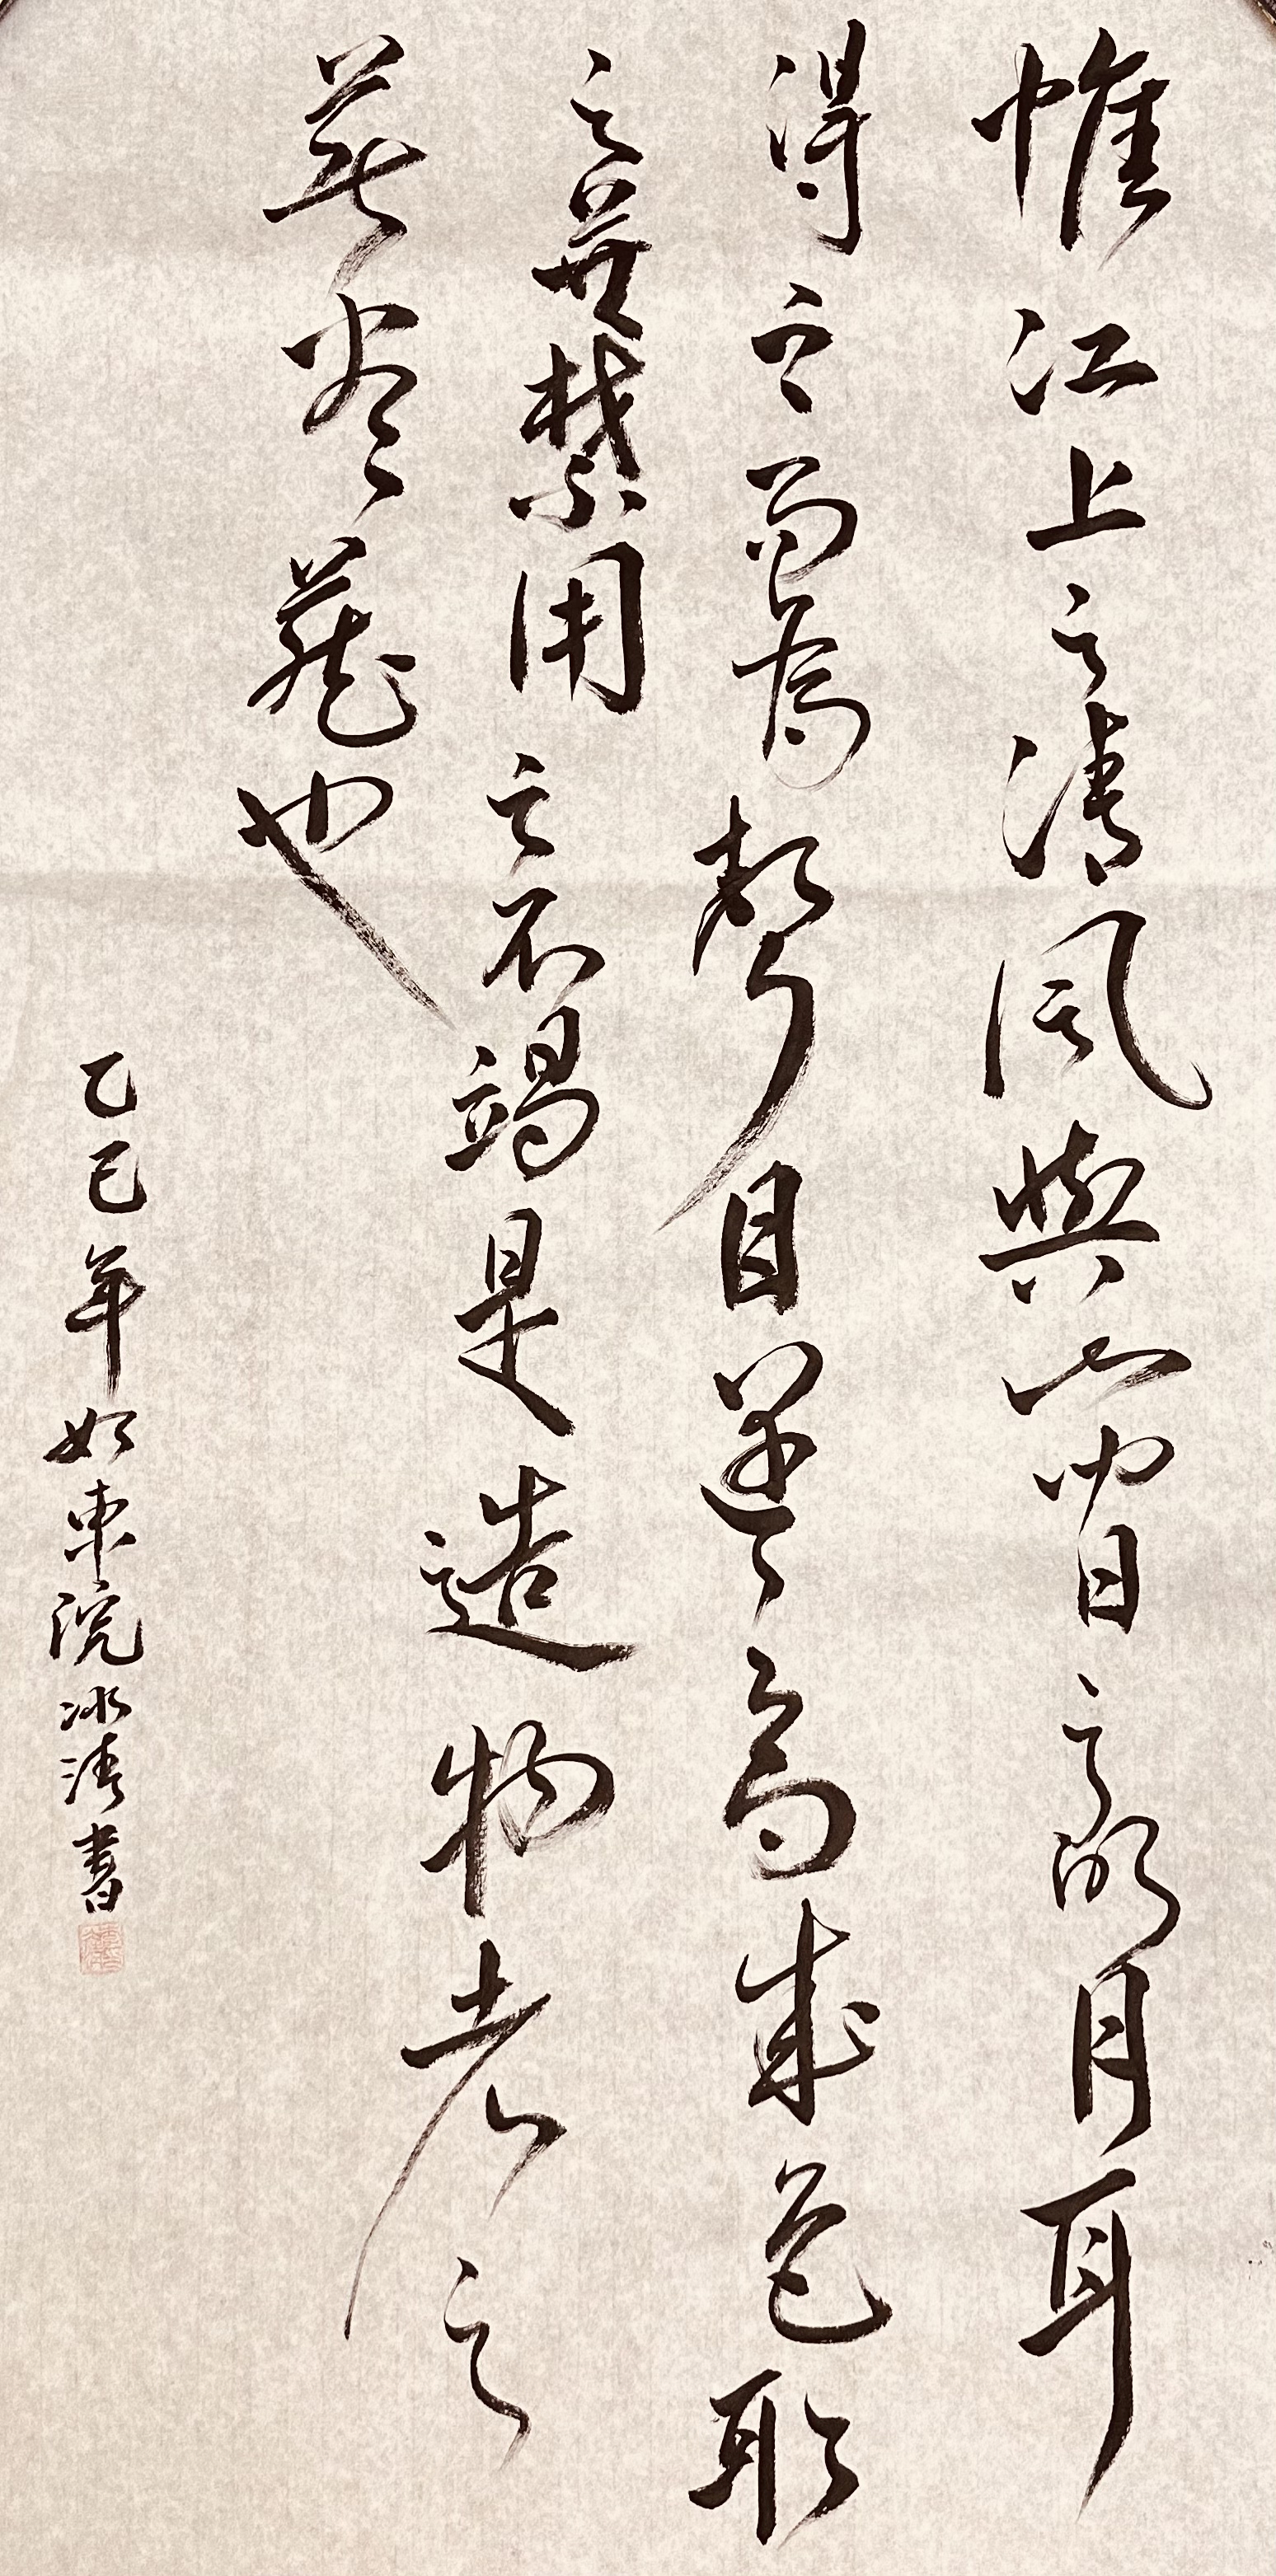 惟江上之清風與山間之明月耳
得之而為聲目遇之而成色取
之無禁用之不竭是造物者之
無盡藏也
乙巳年如東院冰清書